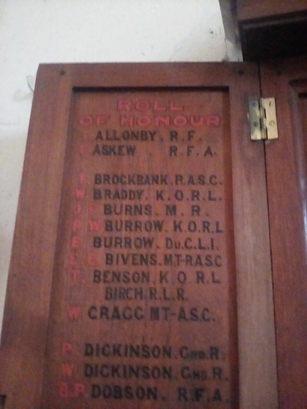 ROLL
OF HONOUR
ALLONBY. R.F.
ASKEW. R.F.A.
BROCKBANK. R.A.S.C.
BRADDY. K.O.R.L.
BURNS. M.R.
W BURROW. K.O.R.L
BURROW. Du.C.L.I.
BIVENS. MT-RASC
BENSON. K.O.R.L
BIRCH. R.L.R.
W CRAGG MT-A.S.C.
DICKINSON. GHD.R.
W. DICKINSON. GHD.R.
B.P. DOBSON. R.F.A.